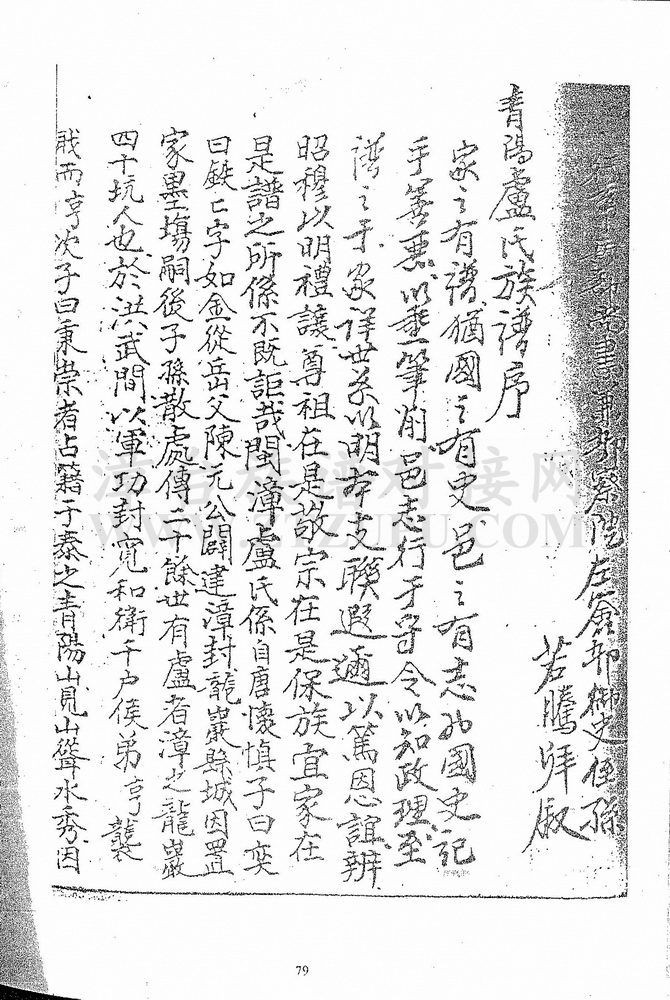 兵部尚書兼都察院左僉都御史侄孫
若騰拜敘
青陽盧氏族譜序
家之有譜猶國之有史邑之有志也國史記
善惡以垂筆削邑志行于守令以知政理至
譜之于家詳世系以明本支聯遐邇以篤恩誼辨
昭穆以明禮讓尊祖在是敬宗在是保族宜家在
是譜之所係不既詎哉閩漳盧氏係自唐懷慎子曰奕
曰鉄亡字如金從岳父陳元公闢建漳封龍巖縣城因置
家墨場嗣後子孫散處傳二十餘世有盧者漳之龍巖
四十坑人也於洪武間以軍功封寬和衛千户侯弟亨襲
戎而亨次子曰秉崇者占籍于泰之青陽山見山聳水秀因
79